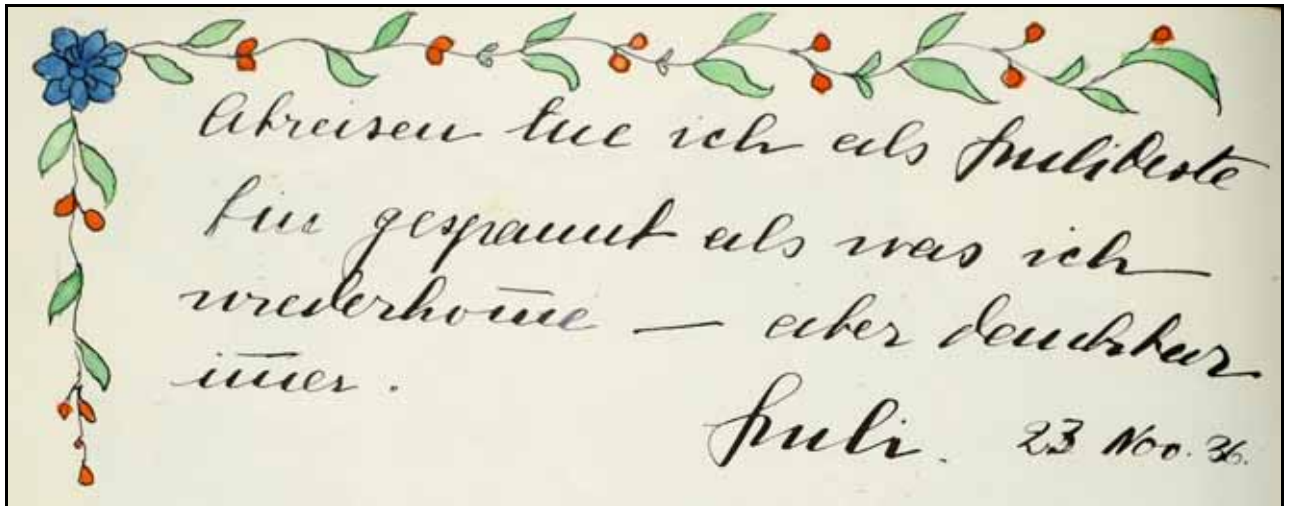 Abreisen tue ich als
bin gespannt als was ich
wiederkom̄e — aber dankbar
im̄er.
23 Nov. 36.